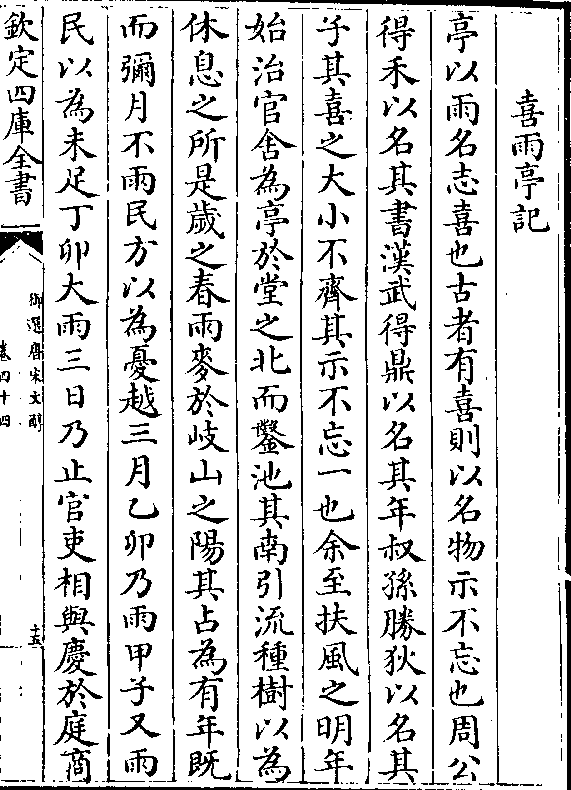 喜雨亭記
亭以雨名志喜也古者有喜則以名物示不忘也周公
得禾以名其書漢武得鼎以名其年叔孫勝狄以名其
子其喜之大小不齊其示不忘一也余至扶風之明年
始治官舍為亭於堂之北而鑿池其南引流種樹以為
休息之所是歲之春雨麥於岐山之陽其占為有年既
而彌月不雨民方以為憂越三月乙卯乃雨甲子又雨
民以為未足丁卯大雨三日乃止官吏相與慶於庭商
欽定四庫全書
御選唐宋文醇
卷四十四